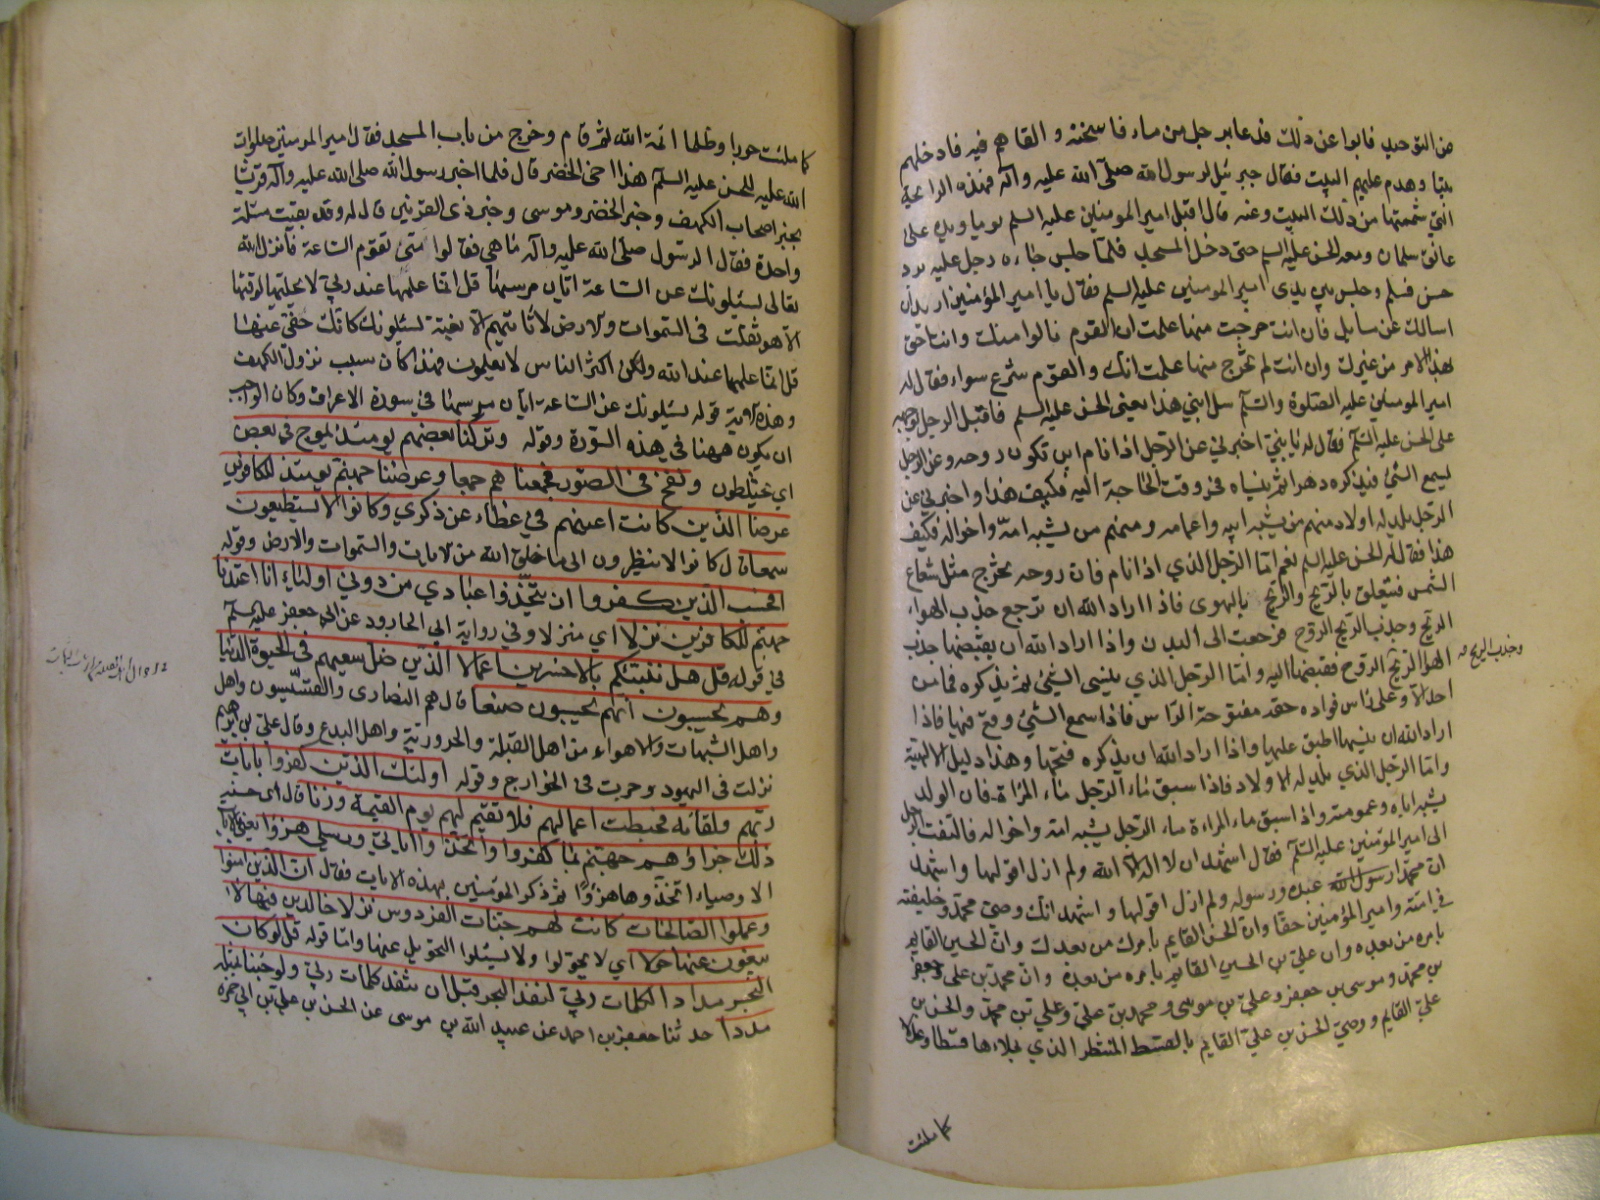 من التوحيد فابوا عن ذلك فدعا برجل من ماء فاسخنه و القاهم فيه فادخلهم
بيتا وهدم عليهم البيت فقال جبرئيل لرسول الله صلى الله عليه وآله فهذه الرائحة
التي شممتها من ذلك البيت وعنه قال اقبل امير المومنين عليه السلم يوما ويده على
عاتق سلمان ومعه الحسن عليه السلم حتى دخل المسجد فلما جلس جاءه رجل عليه برد
حسن فسلم وجلس بين يدى امير المومنين عليه السلم فقال يا امير المؤمنين اريد ان
اسالك عن مسايل فان انت خرجت منها علمت ان القوم نالوا منك وانت احق
بهذا الامر من غيرك وان انت لم تخرج منها علمت انك والقوم شرع سواء فقال له
امير المومنين عليه الصلوة والسلم سل ابني هذا يعني الحسن عليه السلم فاقبل الرجل بوجهه
على الحسن عليه السلم فقال له يا بنيّ اخبرني عن الرجل اذا نام اين تكون روحه وعن الرجل
يسمع الشيء فيذكره دهرا ثم ينساه في وقت الحاجة اليه فكيف هذا واخبرني عن
الرجل يلد له اولاد منهم من يشبه ابيه واعمامه ومنهم من يشبه امه واخواله فكيف
هذا فقال له الحسن عليه السلم نعم اما الرجل الذي اذا نام فان روحه يخرج مثل شعاع
الشمس فتتعلق بالريح والريح بالهوى فاذا اراد الله ان ترجع جذب الهواء
الريح وجذب الريح الروح فرجعت الى البدن واذا اراد الله ان يقبضها جذب
الهوا الريح الروح فقبضها اليه واما الرجل الذي ينسى الشيئ ثم يذكره فما من
وجذب الريح صح
احد الا وعلى راس فواده حقه مفتوحة الراس فاذا سمع الشيئ وقع فيها فاذا
اراد الله ان ينسيها اطبق عليها واذا اراد الله ان يذكره فتحها وهذا دليل الالهية
واما الرجل الذي يلد له الاولاد فاذا سبق ماء الرجل ماء المراة فان الولد
يشبه اباه وعمومته واذا سبق ماء المراءة ماء الرجل يشبه امه واخواله فالتفت الرجل
الى امير المؤمنين عليه السلم فقال اشهد ان لا اله الا الله ولم ازل اقولها واشهد
ان محمدا رسول الله عبده ورسوله ولم ازل اقولها و اشهد انك وصي محمد وخليفته
في امته وامير المؤمنين حقا وان الحسن القايم بامرك من بعدك وان الحسين القايم
بامره من بعده وان علي بن الحسين القايم بامره من بعده وان محمد بن علي وجعفر
بن محمد وموسى بن جعفر وعلي بن موسى و محمد بن علي وعلي بن محمد والحسن بن
علي القايم ووصي الحسن بن علي القايم بالقسط المنتظر الذي يملاءها قسطا وعدلا
كما ملئت
كما ملئت جورا وظلما ائمة الله ثم قام وخرج من باب المسجد فقال امير المومنين صلوات
الله عليه للحسن عليه السلم هذا اخي الخضر قال فلما اخبر رسول الله صلى الله عليه وآله قريشا
بخبر اصحاب الكهف وخبر الخضر وموسى وخبر ذي القرنين قال له وقد بقيت مسئلة
واحدة فقال الرسول صلى الله عليه وآله ما هي فقالوا متى تقوم الساعة فانزل الله
تعالى يسئلونك عن الساعة ايان مرسيها قل انما علمها عند ربي لا يجليها لوقتها
الا هو ثقلت في السموات والارض لا تاتيهم الا بغتة يسئلونك كانك حفي عنها
قل انما علمها عند الله ولكن اكثر الناس لا يعلمون فهذا كان سبب نزول الكهف
وهذه الاية قوله يسئلونك عن الساعة ايان مرسيها في سورة الاعراف وكان الواجب
ان يكون ههنا في هذه السورة وقوله وتركنا بعضهم يومئذ يموج في بعض
اي يختلطون ونفخ في الصور فجمعنا هم جمعا وعرضنا جهنم يومئذ للكافرين
عرضا الذين كانت اعينهم في غطاء عن ذكري وكانوا لا يستطيعون
سمعا قال كانوا لا ينظرون الى ما خلق الله من الايات والسموات والارض وقوله
افحسب الذين كفروا ان يتخذوا عبادي من دوني اولياء انا اعتدنا
جهنم للكافرين نزلا اي منزلا وفي رواية ابي الجارود عن ابي جعفر عليه السلم
في قوله قل هل ننبئكم بالاخسرين اعمالا الذين ضل سعيهم في الحيوة الدنيا
وهم يحسبون انهم يحسنون صنعا قال هم النصارى والقسيسون واهل
واهل الشبهات والاهواء من اهل القبلة والحرورية واهل البدع وقال علي بن ابرهيم
نزلت في اليهود وجرت في الخوارج وقوله اولئك الذين كفروا بايات
ربهم ولقائه فحبطت اعمالهم فلا نقيم لهم يوم القيمة وزنا قال اى حسنة
ذلك جزاؤهم جهنم بما كفروا واتخذوا اياتي ورسلي هزوا يعني بالايات
الاوصياء اتخذوها هزوًا ثم ذكر المؤمنين بهذه الايات فقال ان الذين امنوا
وعملوا الصالحات كانت لهم جنات الفردوس نزلا خالدين فيها لا
يبغون عنها حولا اي لا يحولوا ولا يسئلوا التحويل عنها واما قوله قل لو كان
البحر مدادا لكلمات ربي لنفد البحر قبل ان تنفد كلمات ربي ولو جئنا بمثله
مددا حدثنا جعفر بن احمد عن عبيد الله بن موسى عن الحسن بن علي بن ابي حمزة